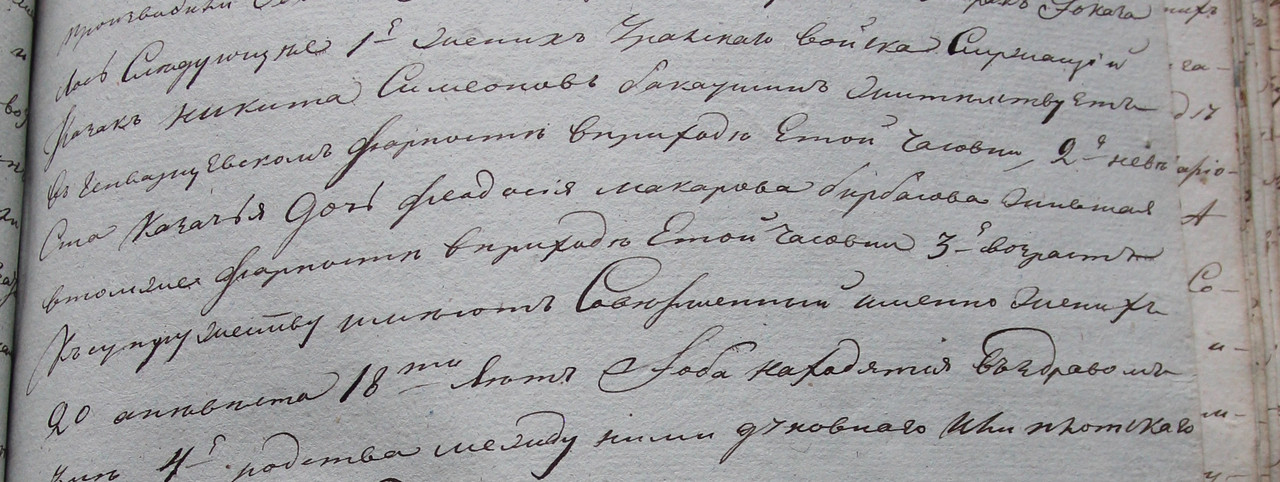 производили
лось Следующее 1е женихъ Уралскаго войска Служащій
Казакъ никита Симеоновъ бакаушинъ жительствуетъ
въ форпосте вприходе Етой Часовни, 2е неве
ста Казачья Дочь феодосія макарова бирбасова жилая
втомже форпосте вприходе Етой Часовни 3е возрастъ
Къ супружеству имеютъ Совершенный именно женихъ
20 аневеста 18ти летъ и оба находятся въ здравомъ
уме 4е родства между ними духовнаго и плотскаго